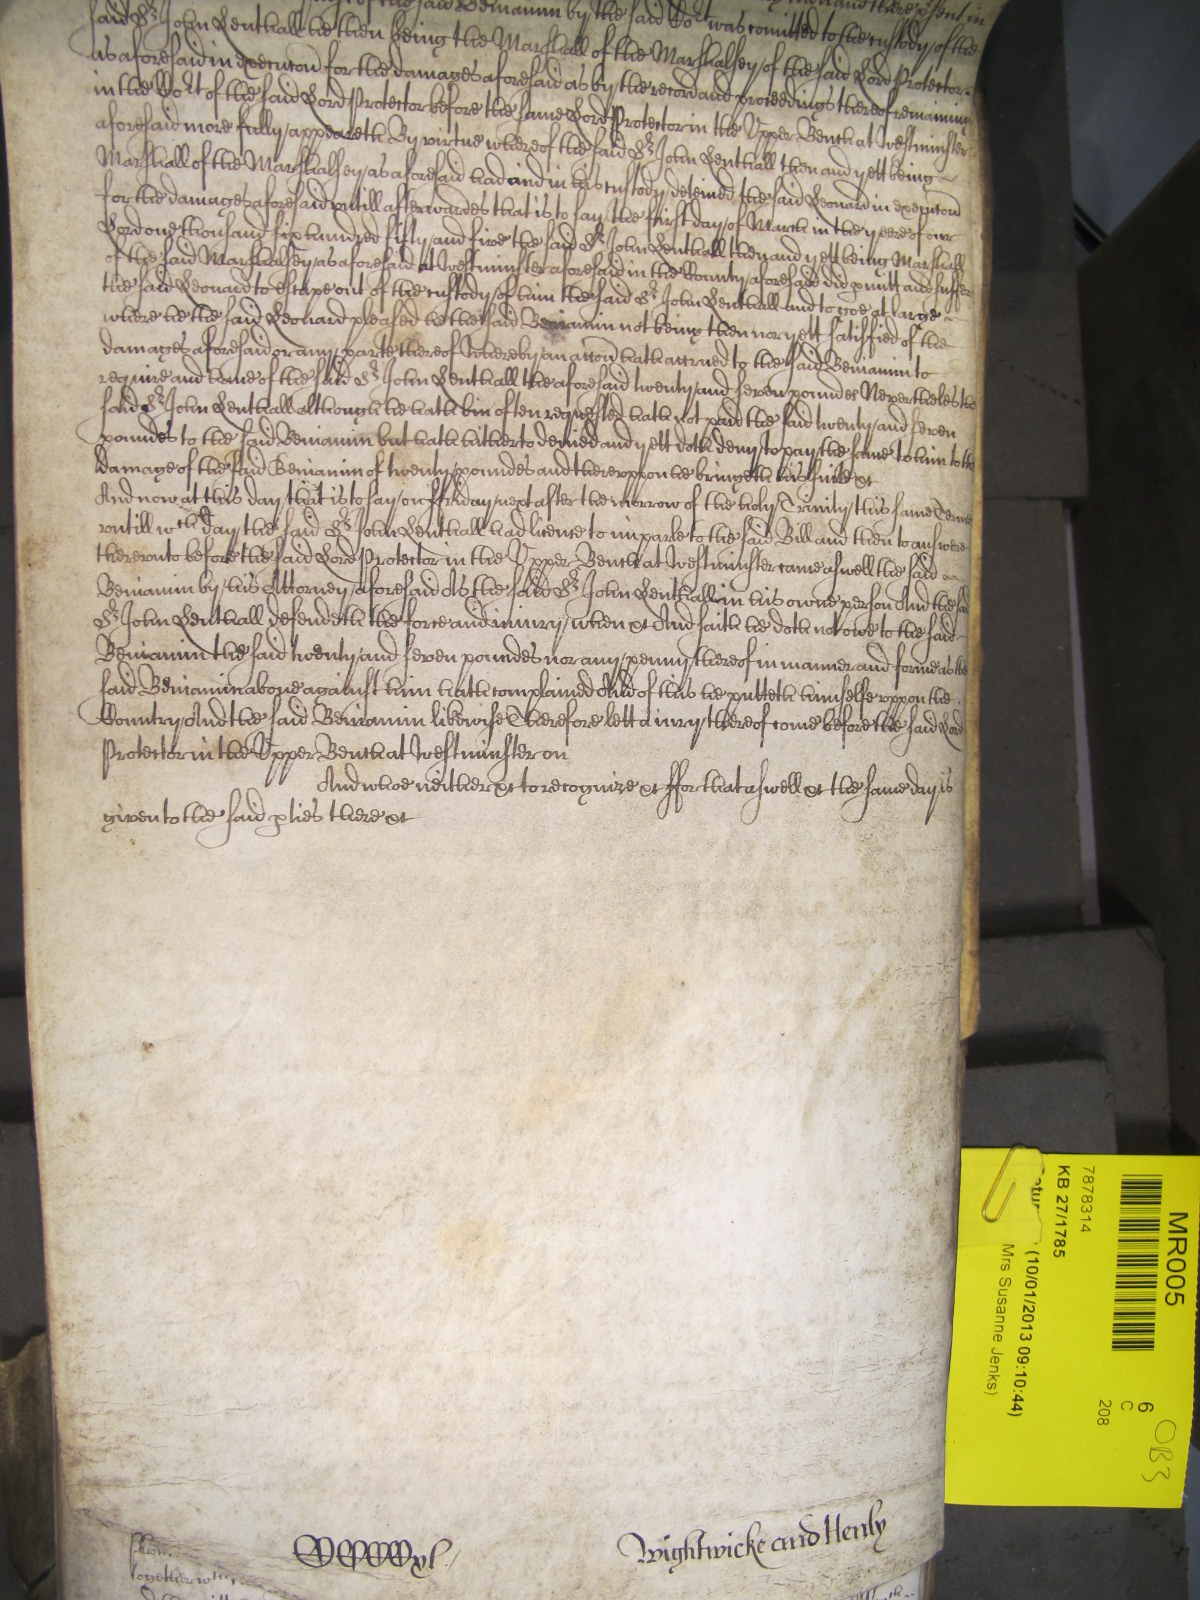 of the said Beniamin by the said Cort was comitted to the custody of the
said Sr John Lenthall he then being the Marshall of the Marshalsey of the said Lord Protector
as aforesaid in execucon for the damages aforesaid as by the record and proceedings thereof remaining
in the Cort of the said Lord Protector before the same Lord Protector in the Upper Bench at Westminster
aforesaid more fully appeareth By virtue whereof the said Sr John Lenthall then and yett being
Marshall of the Marshalsey as aforesaid had and in his custody deteined the said Leonard in execucon
for the damages aforesaid untill afterwardes that is to say the first day of March in the yeere of our
Lord one thousand six hundred fifty and five the said Sr John Lenthall then and yett being Marshall
of the said Marshalsey as aforesaid at Westminster aforesaid in the County aforesaid did pmitt and suffer
the said Leonard to escape out of the custody of him the said Sr John Lenthall and to goe at large
where he the said Leonard pleased he the said Beniamin not being then nor yett satisfied of the
damages aforesaid or any parte thereof Whereby an accon hath accrued to the said Beniamin to
require and have of the said Sr John Lenthall the aforesaid twenty and seven poundes Nevertheles the
said Sr John Lenthall although he hath bin often requested hath not paid the said twenty and seven
poundes to the said Beniamin but hath hitherto denied and yett doth deny to pay the same to him to the
damage of the said Beniamin of twenty poundes and thereuppon he bringeth his suite &c
And now at this day that is to say on ffriday next after the morrow of the holy Trinity this same Terme
untill wch day the said Sr John Lenthall had licence to imparle to the said Bill and then to answere
thereunto before the said Lord Protector in the Upper Bench at Westminster came aswell the said
Beniamin by his Attorney aforesaid As the said Sr John Lenthall in his owne person And the said
Sr John Lenthall defendeth the force and iniury when &c And saith he doth not owe to the said
Beniamin the said twenty and seven poundes nor any penny thereof in manner and forme as the
said Beniamin above against him hath complained And of this he putteth himselfe uppon the
Country And the said Beniamin likewise Therefore lett a iury thereof come before the said Lord
Protector in the Upper Bench at Westminster on
And whoe neither &c to recognize &c ffor that aswell &c the same day is
given to the said pties there &c
Wightwicke and Henly
MR005
7878314
KB 27/1785
(10/01/2013 09:10:44)
Mrs Susanne Jenks)
6
C
208
OB3